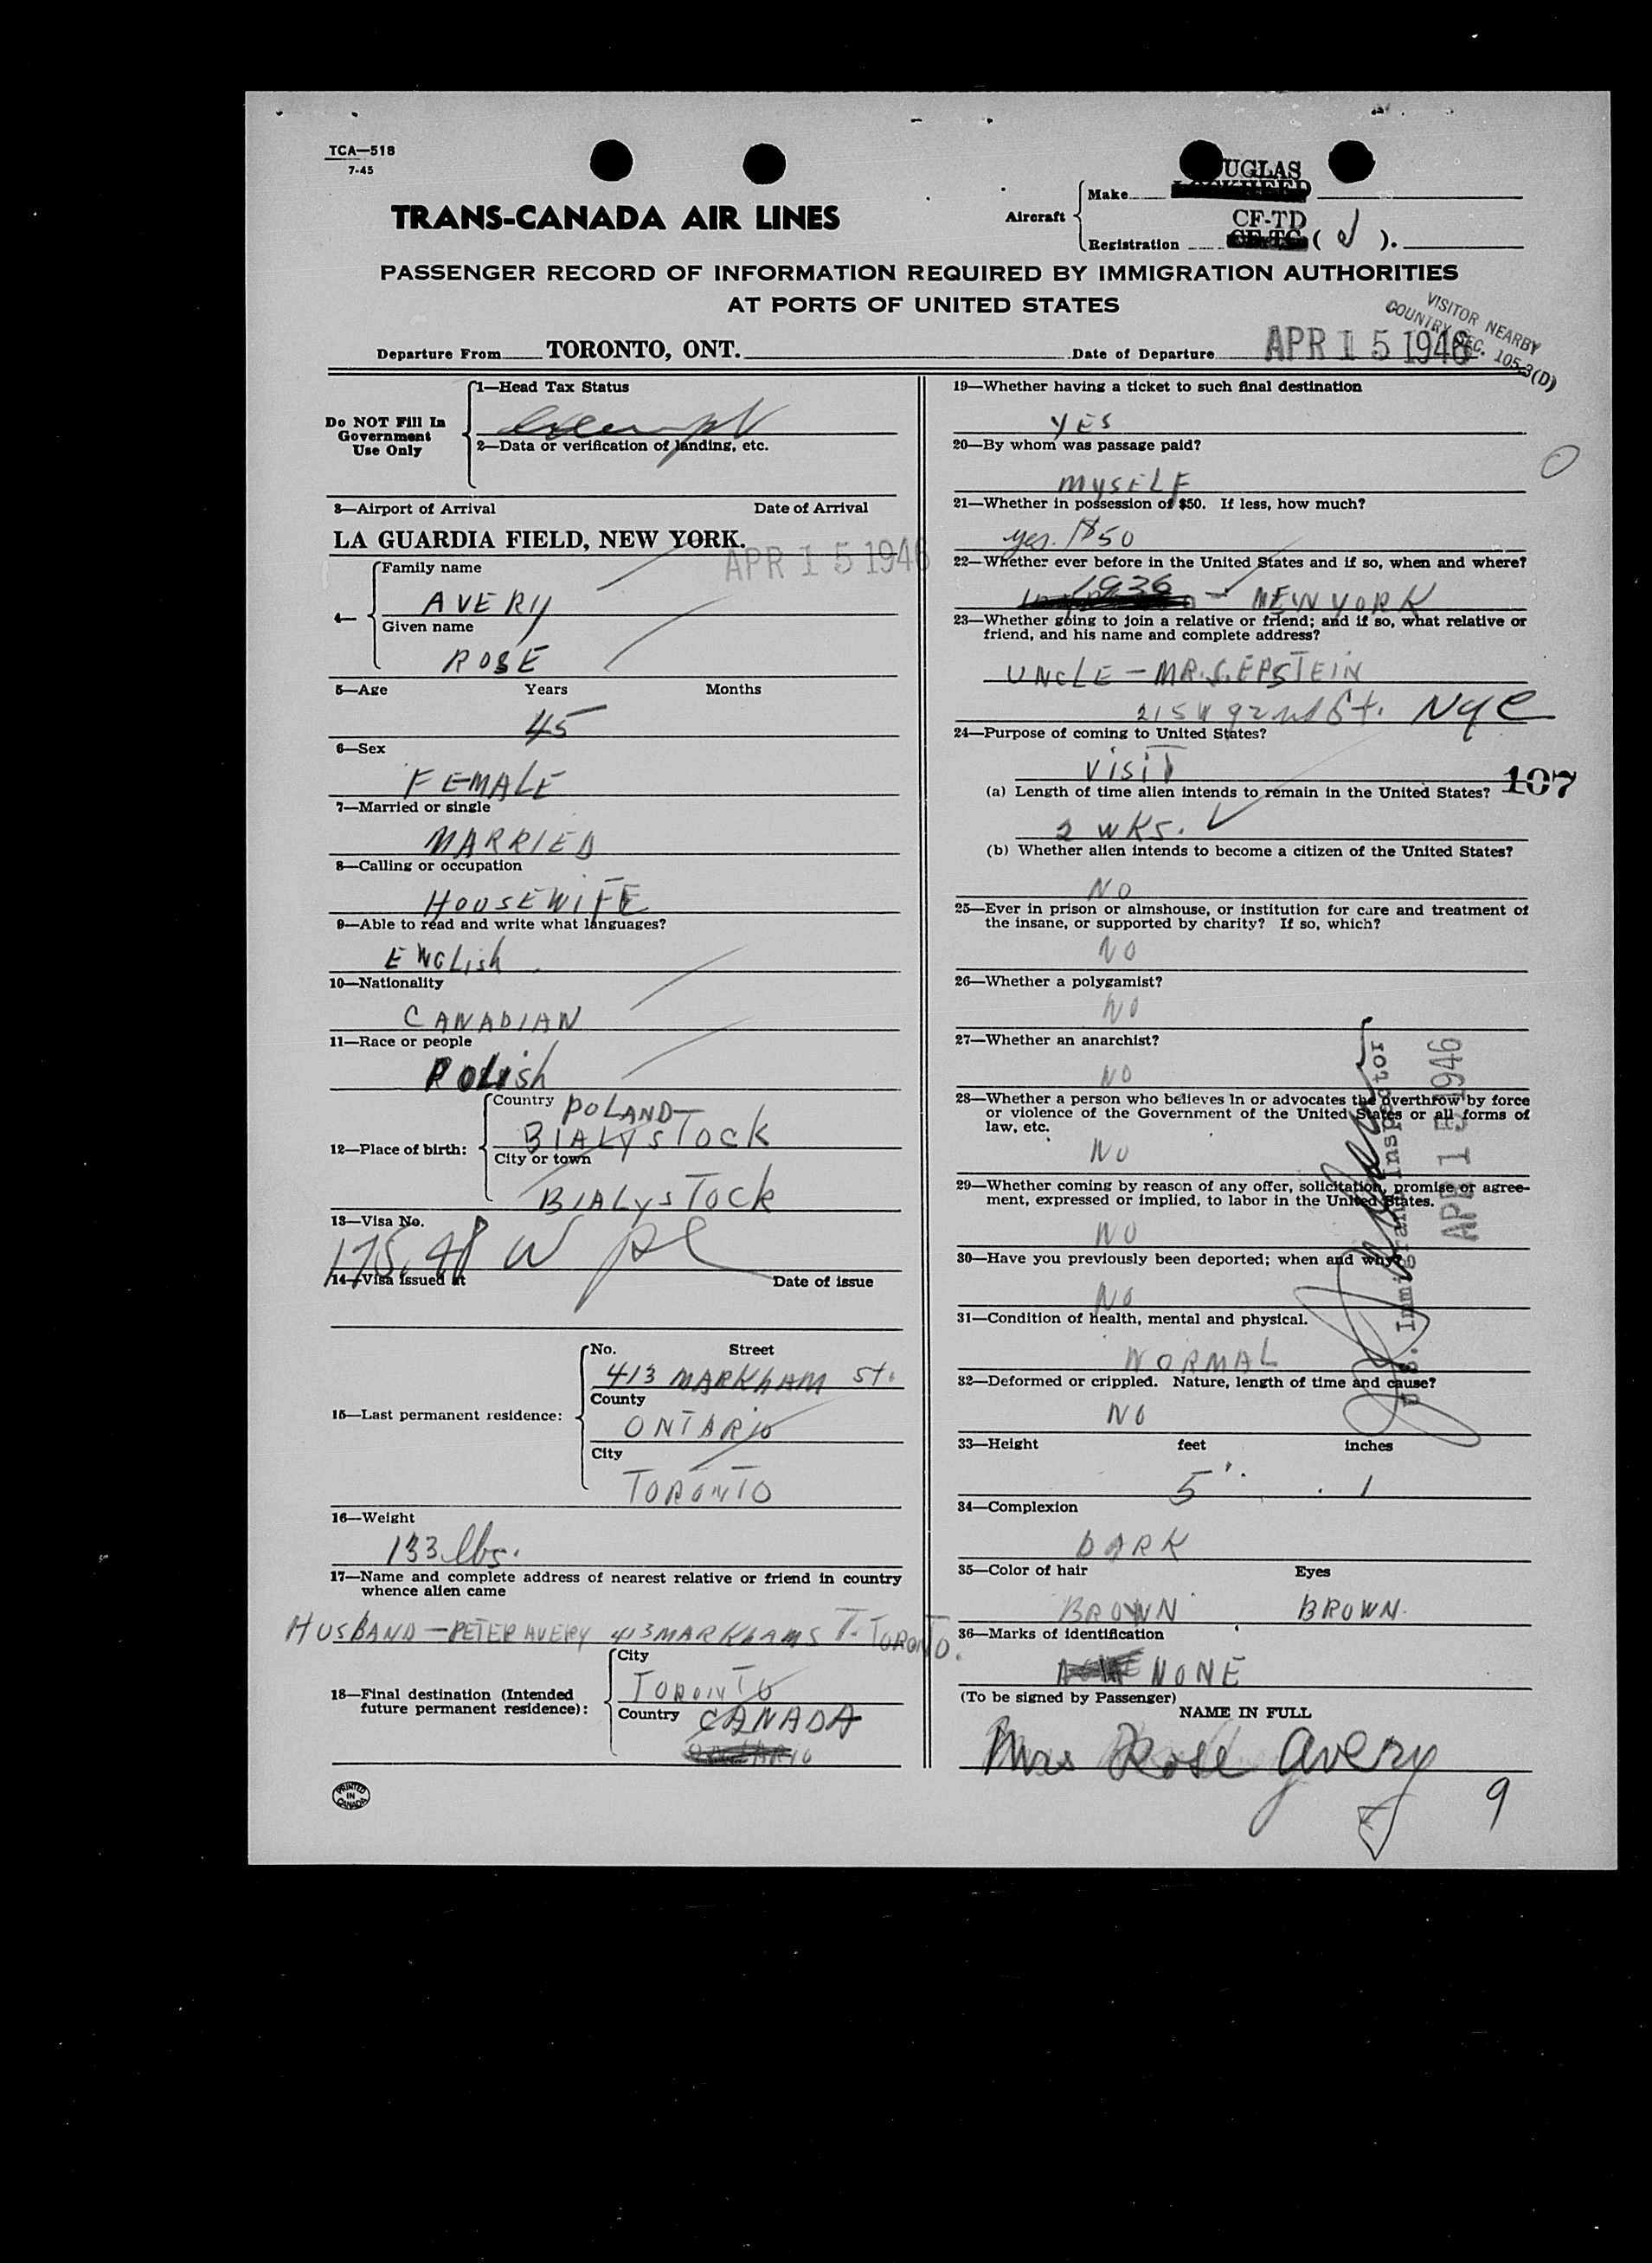 TCA—518
7-45
TRANS-CANADA AIR LINES
Aircraft
Make
UGLAS
Registration
CF-TD
( J ).
PASSENGER RECORD OF INFORMATION REQUIRED BY IMMIGRATION AUTHORITIES
AT PORTS OF UNITED STATES
VISITOR NEARBY
COUNTRY SEC. 105.3(D)
Departure From TORONTO, ONT. Date of Departure APR 15 1946
Do NOT Fill In
Government
Use Only
1—Head Tax Status
Exempt
2—Data or verification of landing, etc.
3—Airport of Arrival Date of Arrival
LA GUARDIA FIELD, NEW YORK. APR 15 1946
4—
Family name
AVERY
Given name
ROSE
5—Age Years Months
45
6—Sex
FEMALE
7—Married or single
MARRIED
8—Calling or occupation
HOUSEWIFE
9—Able to read and write what languages?
ENGLish
10—Nationality
CANADIAN
11—Race or people
POLish
12—Place of birth:
Country POLAND
BIALYSTOCK
City or town
BIALYSTOCK
13—Visa No.
14—Visa issued at Date of issue
15—Last permanent residence:
No. Street
413 MARKHAM St.
County
ONTARIO
City
TORONTO
16—Weight
133 lbs.
17—Name and complete address of nearest relative or friend in country
whence alien came
HUSBAND — PETER AVERY 413 MARKHAM ST. TORONTO.
18—Final destination (Intended
future permanent residence):
City
TORONTO
Country CANADA
PRINTED
IN
CANADA
19—Whether having a ticket to such final destination
YES
20—By whom was passage paid?
MYSELF
21—Whether in possession of $50. If less, how much?
yes. $50
22—Whether ever before in the United States and if so, when and where?
1936 — NEW YORK
23—Whether going to join a relative or friend; and if so, what relative or
friend, and his name and complete address?
UNCLE — MR. S. EPSTEIN
215 W 92nd St. NYC
24—Purpose of coming to United States?
VISIT
107
(a) Length of time alien intends to remain in the United States?
2 WKS.
(b) Whether alien intends to become a citizen of the United States?
NO
25—Ever in prison or almshouse, or institution for care and treatment of
the insane, or supported by charity? If so, which?
NO
26—Whether a polygamist?
NO
27—Whether an anarchist?
NO
28—Whether a person who believes in or advocates the overthrow by force
or violence of the Government of the United States or all forms of
law, etc.
NO
29—Whether coming by reason of any offer, solicitation, promise or agree-
ment, expressed or implied, to labor in the United States.
NO
30—Have you previously been deported; when and why?
NO
31—Condition of health, mental and physical.
NORMAL
32—Deformed or crippled. Nature, length of time and cause?
NO
U.S. Immigrant Inspector
APR 15 1946
33—Height feet inches
5' 1
34—Complexion
DARK
35—Color of hair Eyes
BROWN BROWN.
36—Marks of identification
NONE
(To be signed by Passenger)
NAME IN FULL
Mrs Rose Avery
9